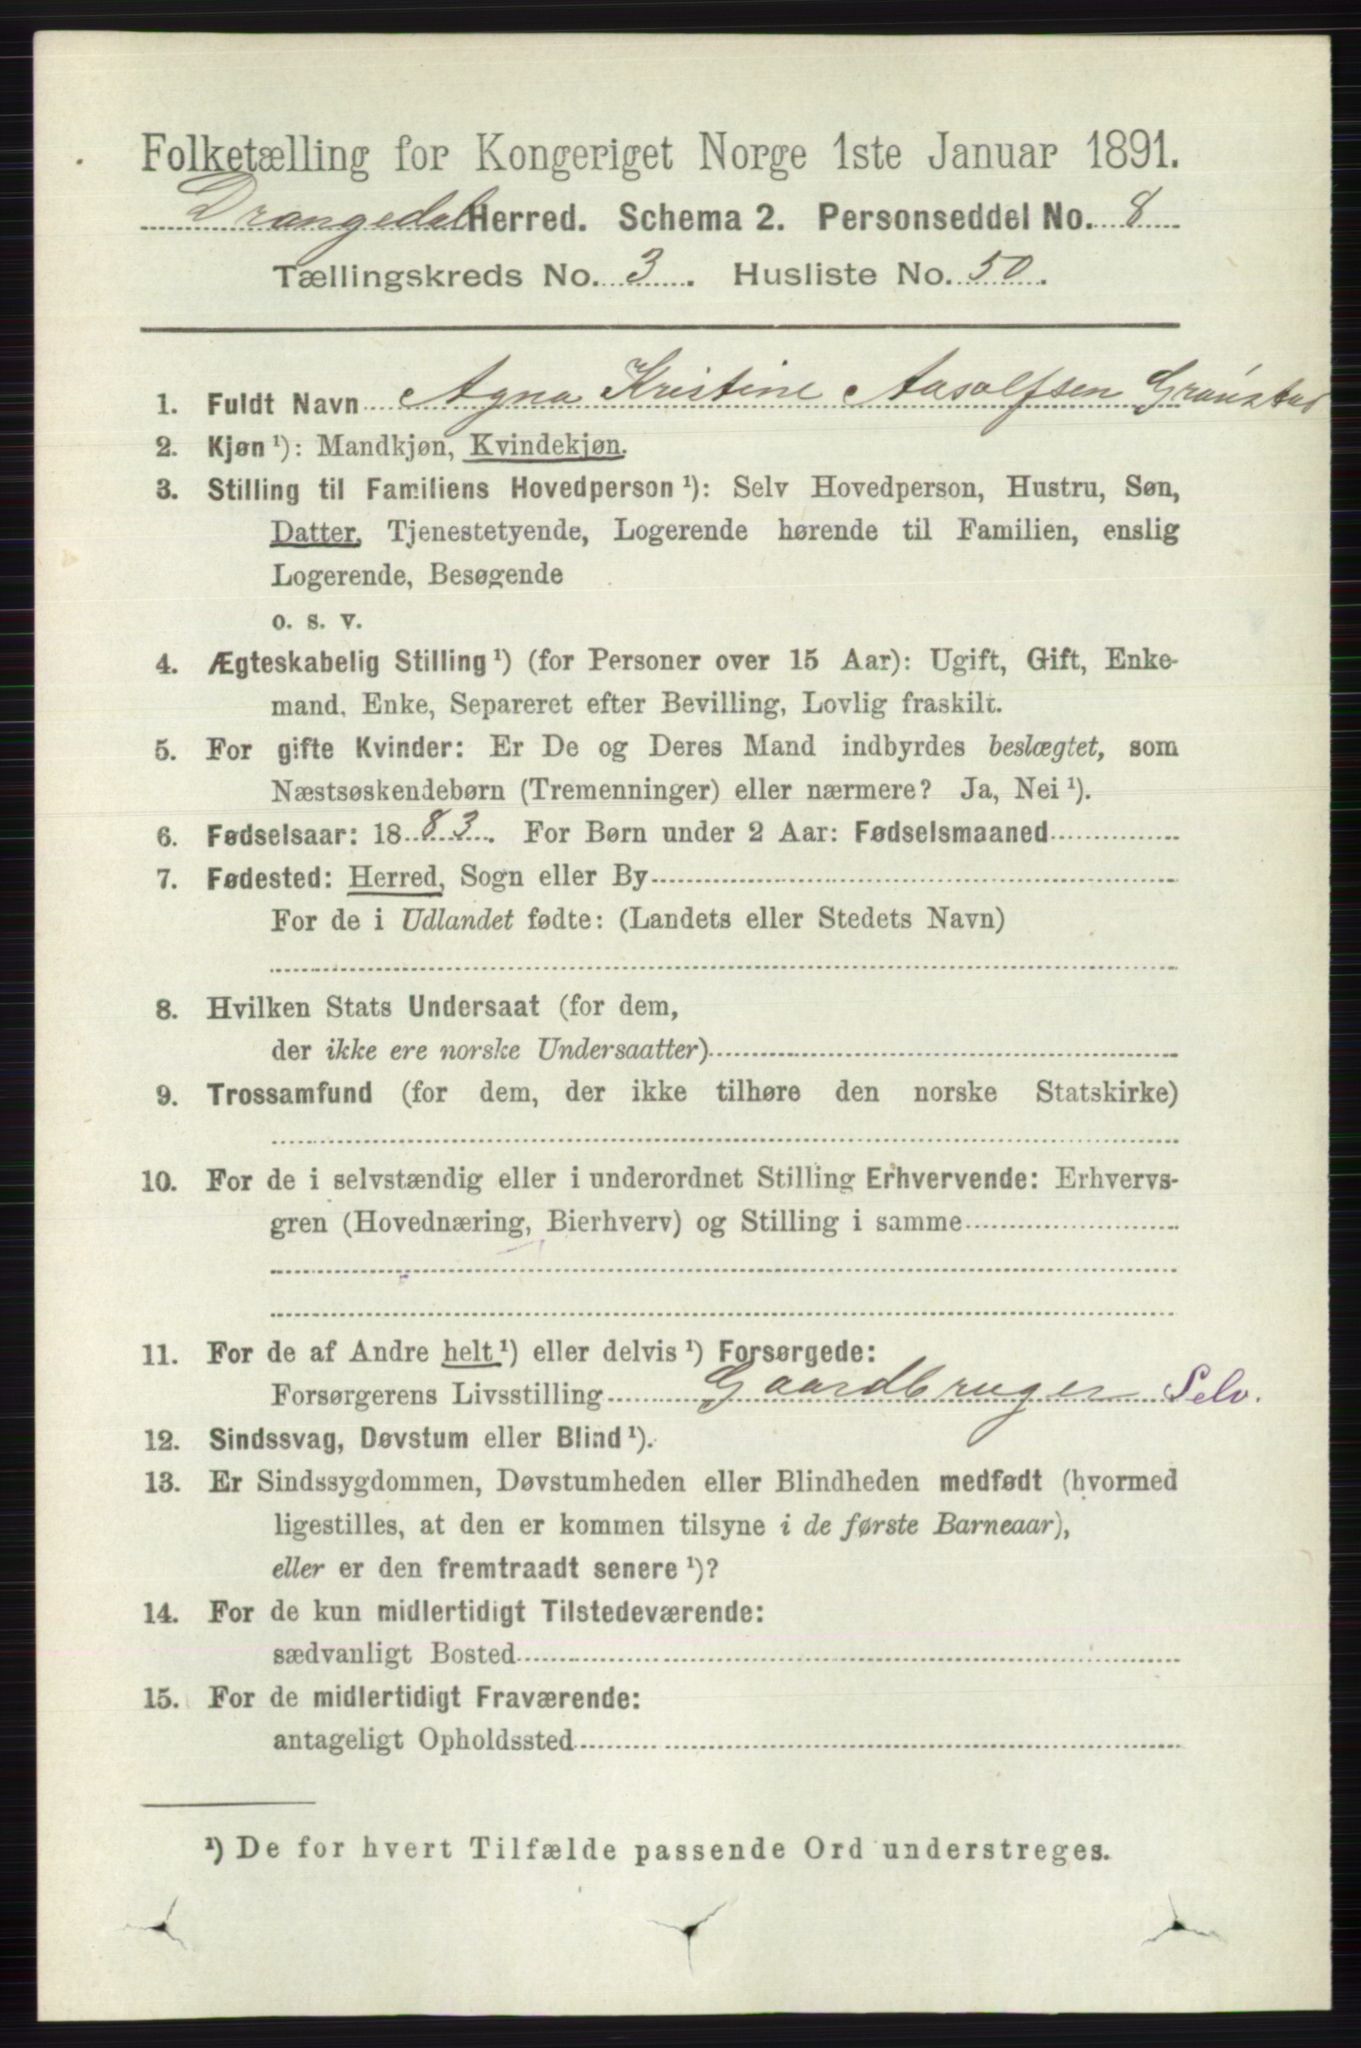 Folketælling for Kongeriget Norge 1ste Januar 1891.
Drangedal Herred. Schema 2. Personseddel No. 8
Tællingskreds No. 3. Husliste No. 50.
1. Fuldt Navn Agna Kristine Aasolfsen
2. Kjøn ¹): Mandkjøn, Kvindekjøn.
3. Stilling til Familiens Hovedperson ¹): Selv Hovedperson, Hustru, Søn,
Datter, Tjenestetyende, Logerende hørende til Familien, enslig
Logerende, Besøgende
o. s. v.
4. Ægteskabelig Stilling ¹) (for Personer over 15 Aar): Ugift, Gift, Enke-
mand, Enke, Separeret efter Bevilling, Lovlig fraskilt.
5. For gifte Kvinder: Er De og Deres Mand indbyrdes beslægtet, som
Næstsøskendebørn (Tremenninger) eller nærmere? Ja, Nei ¹).
6. Fødselsaar: 1883. For Børn under 2 Aar: Fødselsmaaned
7. Fødested: Herred, Sogn eller By
For de i Udlandet fødte: (Landets eller Stedets Navn)
8. Hvilken Stats Undersaat (for dem,
der ikke ere norske Undersaatter)
9. Trossamfund (for dem, der ikke tilhøre den norske Statskirke)
10. For de i selvstændig eller i underordnet Stilling Erhvervende: Erhvervs-
gren (Hovednæring, Bierhverv) og Stilling i samme
11. For de af Andre helt ¹) eller delvis ¹) Forsørgede:
Forsørgerens Livsstilling Gaardbruger Selv.
12. Sindssvag, Døvstum eller Blind ¹).
13. Er Sindssygdommen, Døvstumheden eller Blindheden medfødt (hvormed
ligestilles, at den er kommen tilsyne i de første Barneaar),
eller er den fremtraadt senere ¹)?
14. For de kun midlertidigt Tilstedeværende:
sædvanligt Bosted
15. For de midlertidigt Fraværende:
antageligt Opholdssted
¹) De for hvert Tilfælde passende Ord understreges.